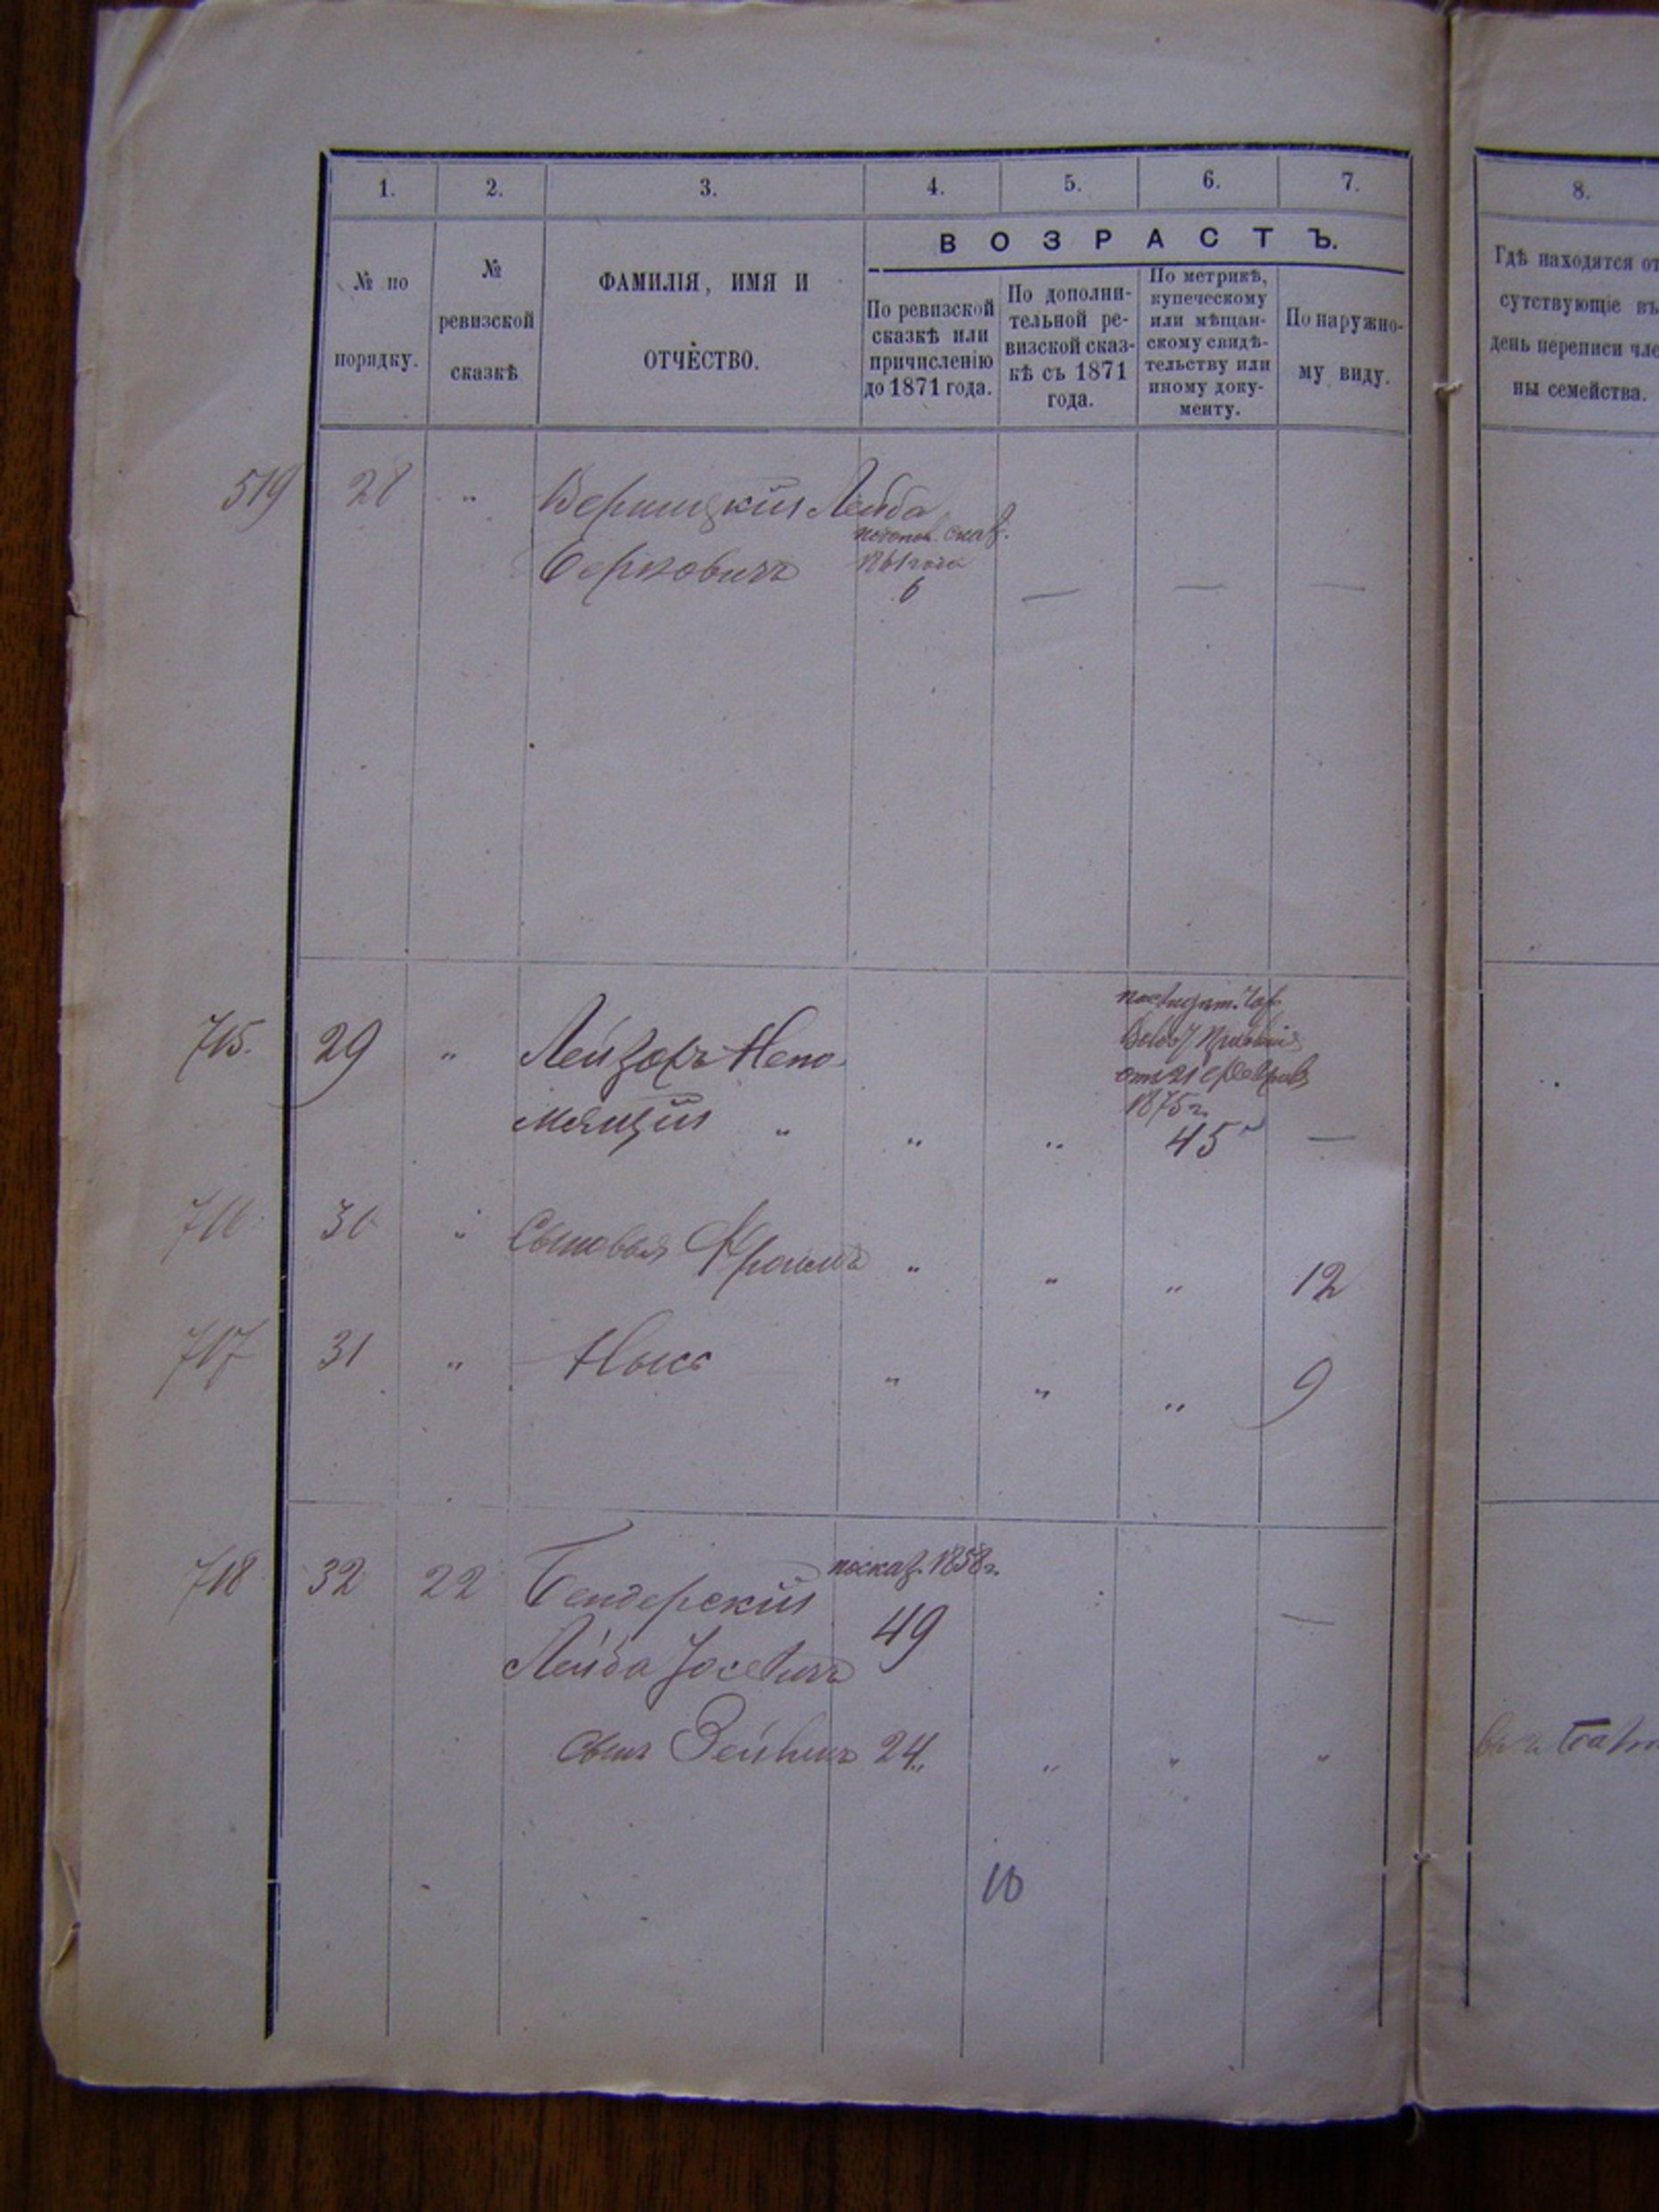 1. 2. 3. 4. 5. 6. 7. 8.
№ по
порядку.
№
ревизской
сказкѣ
ФАМИЛІЯ, ИМЯ И
ОТЧЕСТВО.
ВОЗРАСТЪ.
По ревизской
сказкѣ или
причисленію
до 1871 года.
По дополни-
тельной ре-
визской сказ-
кѣ съ 1871
года.
По метрикѣ,
купеческому
или мѣщан-
скому свидѣ-
тельству или
иному доку-
менту.
По наружно-
му виду.
Гдѣ находятся от
сутствующіе въ
день переписи чле
ны семейства.
519 28 „ Лейба
Берковичъ
6 — — —
715. 29 „ Лейзоръ Непо-
мящій „ „ „
1875 г.
45 —
716. 30 „ Сыновья Фроимъ „ „ „ 12
717 31 „ Нысъ „ „ „ 9
718 32 22 Бендерскій по сказ. 1858 г.
49 —
Лейба Іосевичъ
сынъ Зейликъ 24 „ „ „
10